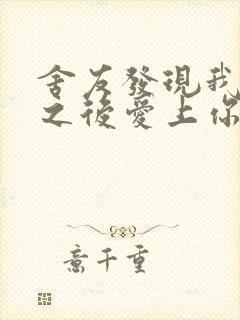 舍友發現我
之後愛上你
意千重